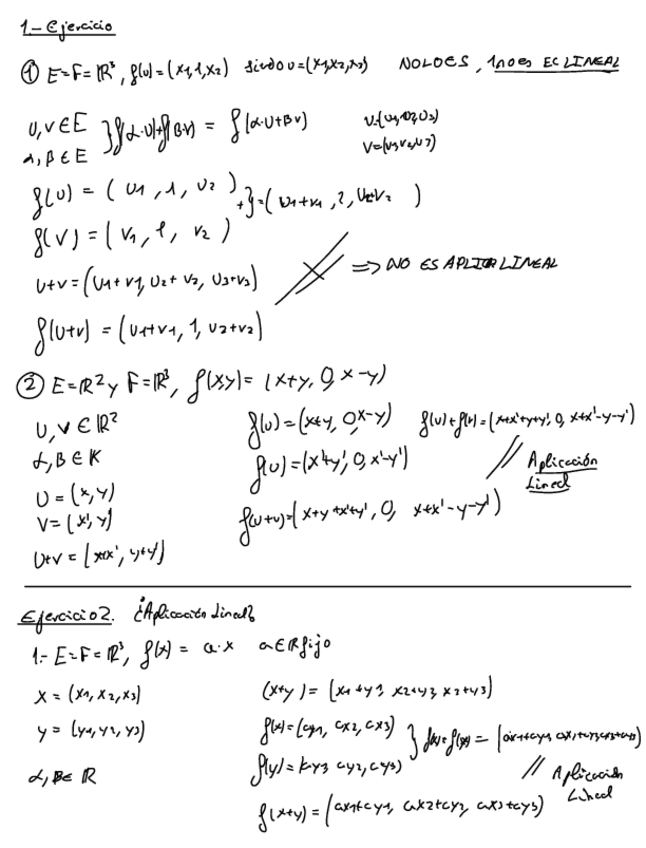 1.- Ejercicio
① E=F=ℝ³, f(u)=(x1,1,x2) siendo u=(x1,x2,x3) NO LO ES, 1 no es EC LINEAL
u,v∈E
α,β∈E } f(α·u)+f(β·v) = f(α·u+βv)
u=(u1,u2,u3)
f(u) = (u1, 1, u2)
f(v) = (v1, 1, v2) +} = (u1+v1, 2, u2+v2)
u+v = (u1+v1, u2+v2, u3+v3) => NO ES LINEAL
f(u+v) = (u1+v1, 1, u2+v2)
② E=ℝ² y F=ℝ³, f(x,y) = (x+y, 0, x-y)
u,v∈ℝ² f(u)=(x+y, 0, x-y) f(u)+f(v)=(x+x'+y+y', 0, x+x'-y-y')
α,β∈K f(u)=(x'+y', 0, x'-y') // Aplicación Lineal
u=(x,y)
v=(x',y) f(u+v)=(x+y+x'+y', 0, x+x'-y-y')
u+v=(x+x', y+y')
Ejercicio 2. ¿Aplicación Lineal?
1.- E=F=ℝ³, f(x) = a·x a∈ℝ fijo
x=(x1,x2,x3) (x+y)=(x1+y1, x2+y2, x3+y3)
y=(y1,y2,y3) f(x)=(ax1, ax2, ax3)
α,β∈ℝ // Aplicación Lineal
f(x+y)=(ax1+ay1, ax2+ay2, ax3+ay3)